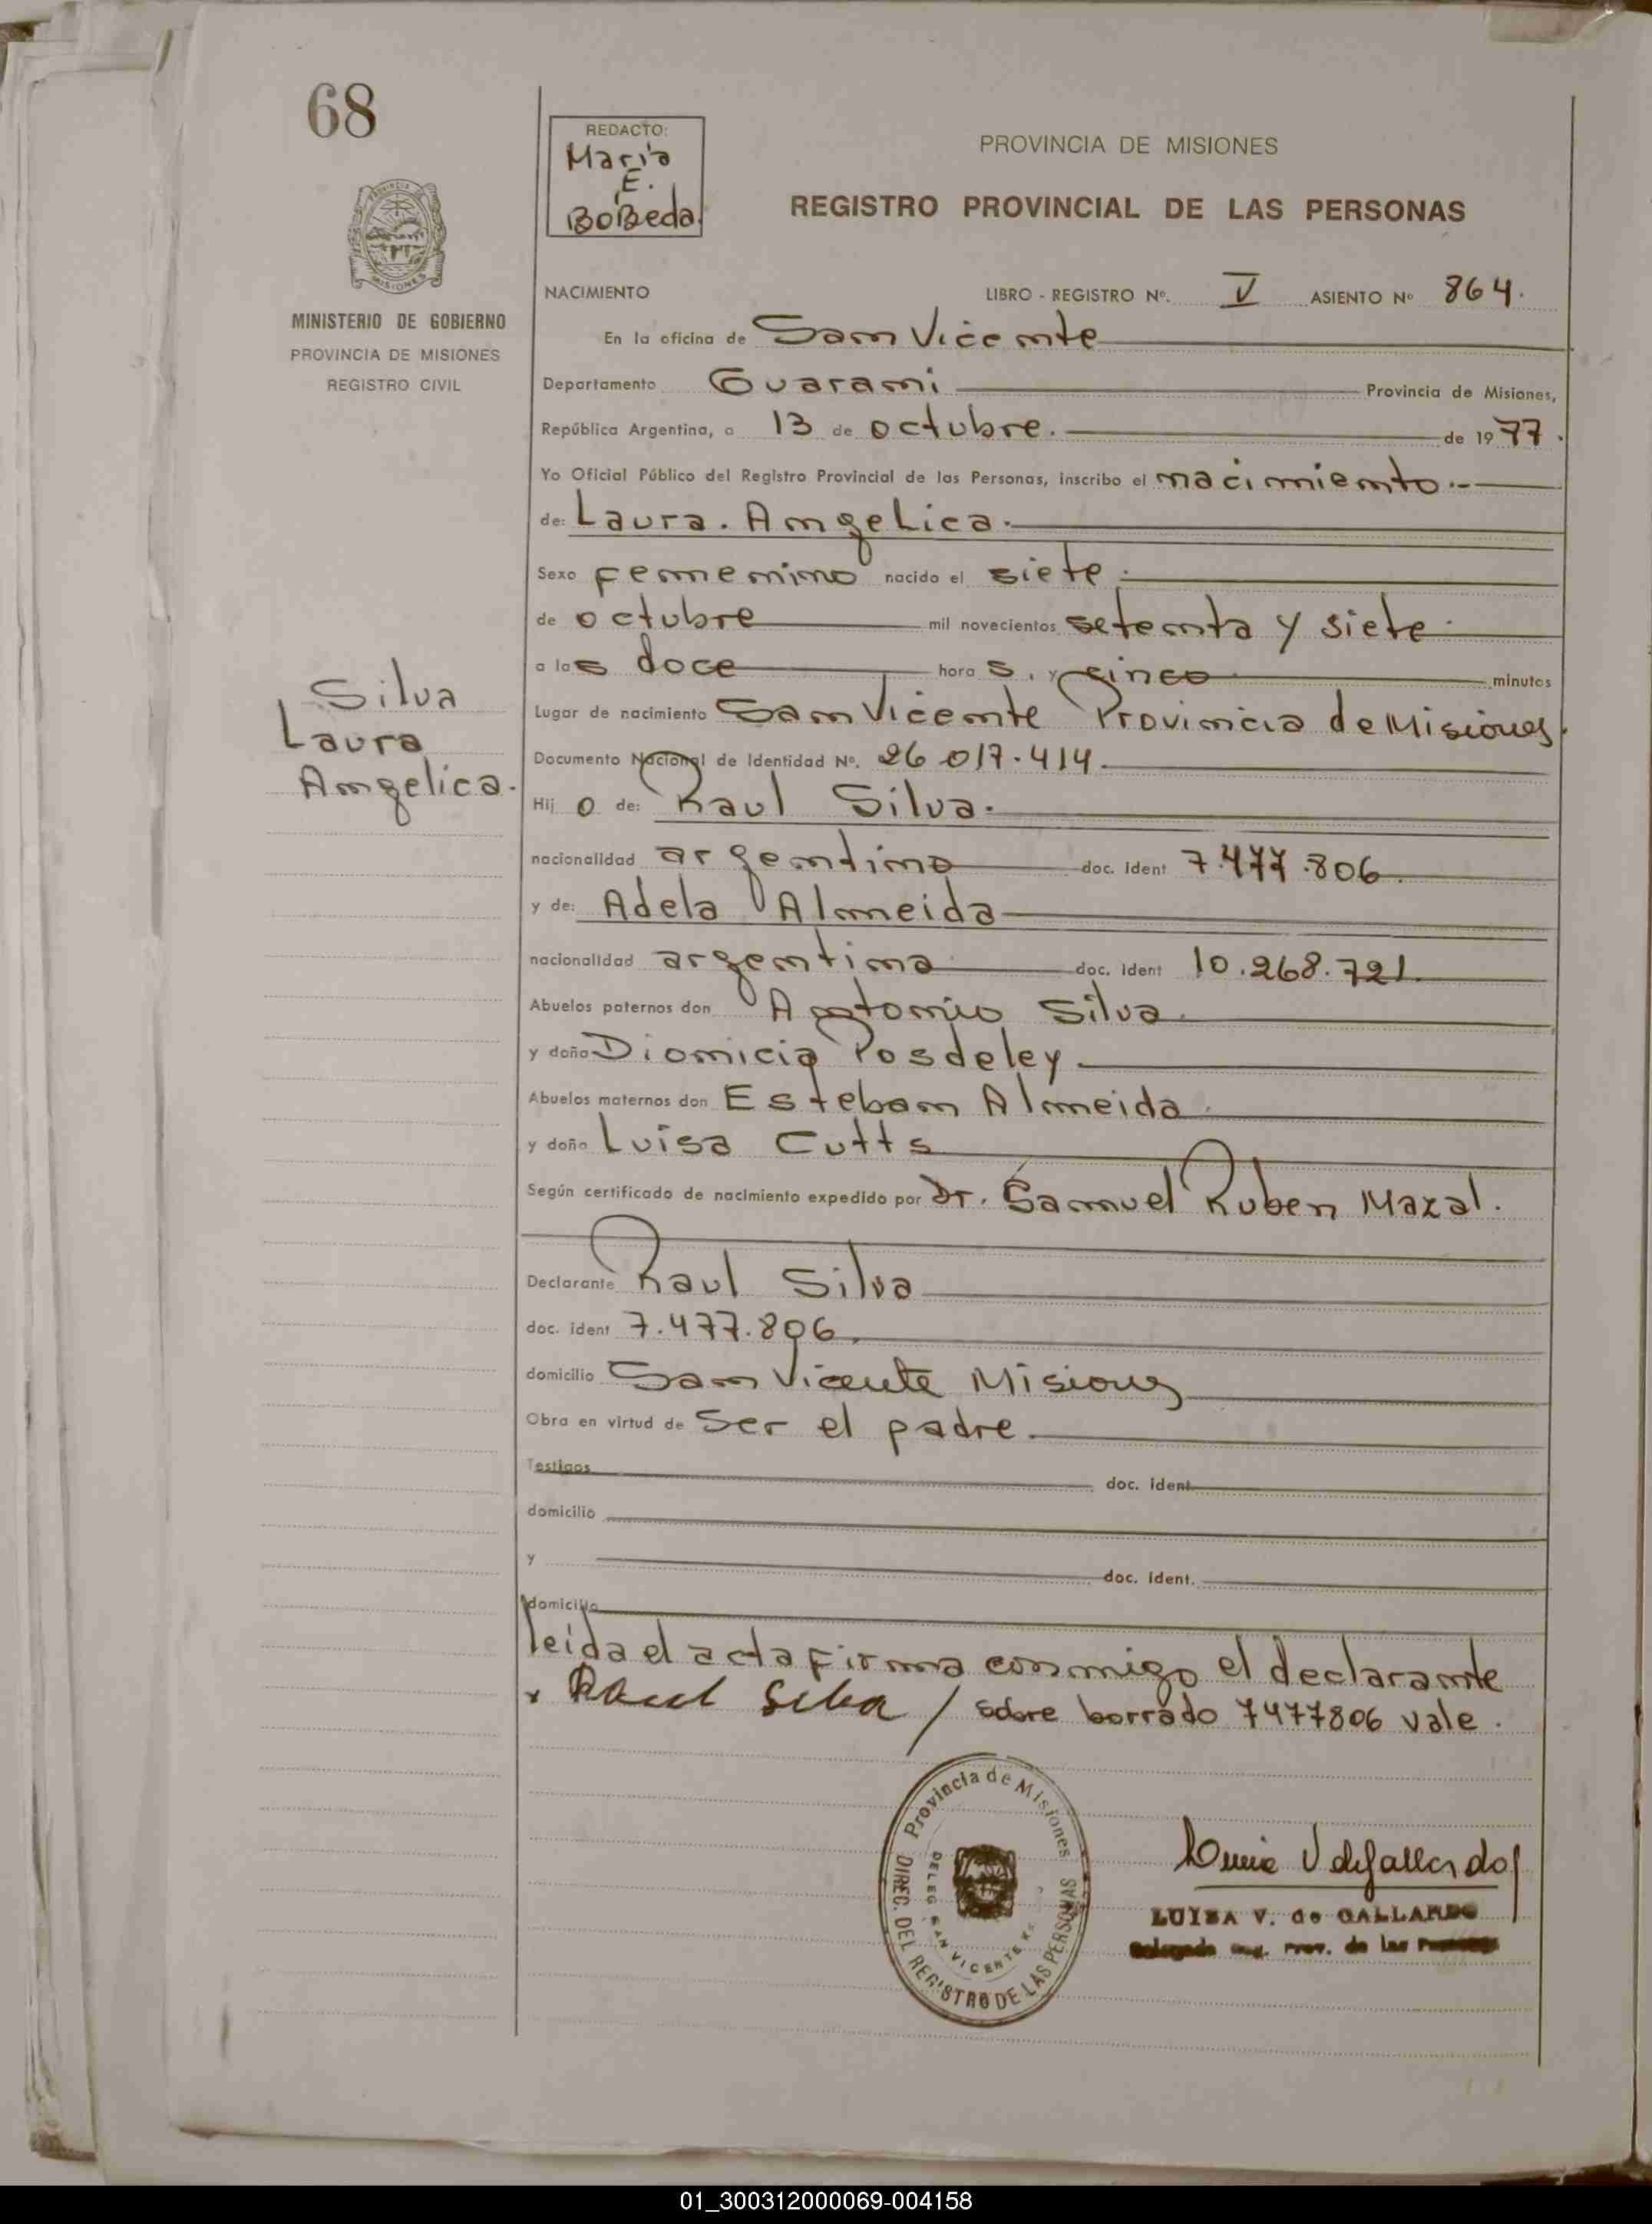 68
REDACTO:
Maria
E.
BoBeda.
PROVINCIA DE MISIONES
REGISTRO PROVINCIAL DE LAS PERSONAS
MISIONES
MINISTERIO DE GOBIERNO
PROVINCIA DE MISIONES
REGISTRO CIVIL
NACIMIENTO LIBRO - REGISTRO Nº. V ASIENTO Nº 864.
En la oficina de San Vicente
Departamento Guarani Provincia de Misiones,
República Argentina, a 13 de octubre. de 1977.
Yo Oficial Público del Registro Provincial de las Personas, inscribo el nacimiento.-
de: Laura. Angelica.
Sexo femenino nacido el siete.
de octubre mil novecientos setenta y siete.
a las doce horas, y cinco minutos
Lugar de nacimiento San Vicente Provincia de Misiones.
Documento Nacional de Identidad Nº. 26.017.414.
Hijo de: Raul Silva.
nacionalidad argentino doc. ident 7.477.806.
y de: Adela Almeida
nacionalidad argentina doc. ident 10.268.721.
Abuelos paternos don Antonio Silva.
y doña Dionicia Posdeley
Abuelos maternos don Esteban Almeida.
y doña Luisa Cutts
Según certificado de nacimiento expedido por Dr. Samuel Ruben Mazal.
Silva
Laura
Angelica.
Declarante Raul Silva
doc. ident 7.477.806.
domicilio San Vicente Misiones
Obra en virtud de Ser el padre.
Testigos doc. ident.
domicilio
y doc. ident.
domicilio
leida el acta firma conmigo el declarante
x Raul Silva / sobre borrado 7477806 vale.
Provincia de Misiones
DIREC. DEL REGISTRO DE LAS PERSONAS
DELEG. SAN VICENTE
LUISA V. de GALLARDO
Delegada Reg. Prov. de las Personas
01_300312000069-004158